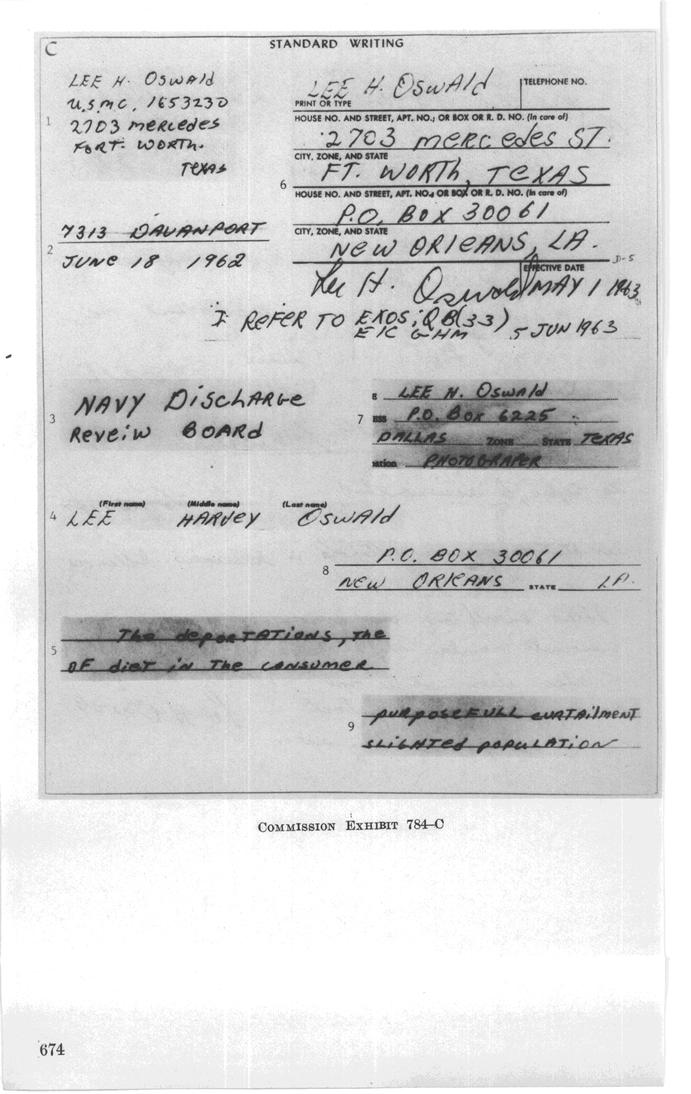 C
STANDARD WRITING
LEE H. OSWAld
U.S.M.C. 1653230
2703 MERCEdES
FORT. WORTH.
TEXAS
1
LEE H. OSWAld
TELEPHONE NO.
PRINT OR TYPE
HOUSE NO. AND STREET, APT. NO.; OR BOX OR R. D. NO. (In care of)
2703 MERCEdES ST.
CITY, ZONE, AND STATE
FT. WORTH, TEXAS
6
HOUSE NO. AND STREET, APT. NO.; OR BOX OR R. D. NO. (In care of)
P.O. BOX 30061
CITY, ZONE, AND STATE
NEW ORlEANS, LA.
D-5
EFFECTIVE DATE
Lee H. Oswald MAY 1 1963
7313 DAVANPORT
2
JUNE 18 1962
I REFER TO EXOS; Q8(33)
5 JUN 1963
NAVY DiscHARGE
3
REVEiW BOARd
s LEE H. OSWAld
7 ess P.O. BOX 6225
DALLAS ZONE STATE TEXAS
ation PHOTOGRAPER
(First name) (Middle name) (Last name)
4 LEE HARVEY OSWAld
P.O. BOX 30061
8
NEW ORlEANS STATE LA.
THE dEPORTATIONS, THE
5
OF diET iN THE CONSUMER
PURPOSEFULL CURTAilMENT
9
SLIGHTEd POPULATION
COMMISSION EXHIBIT 784–C
674